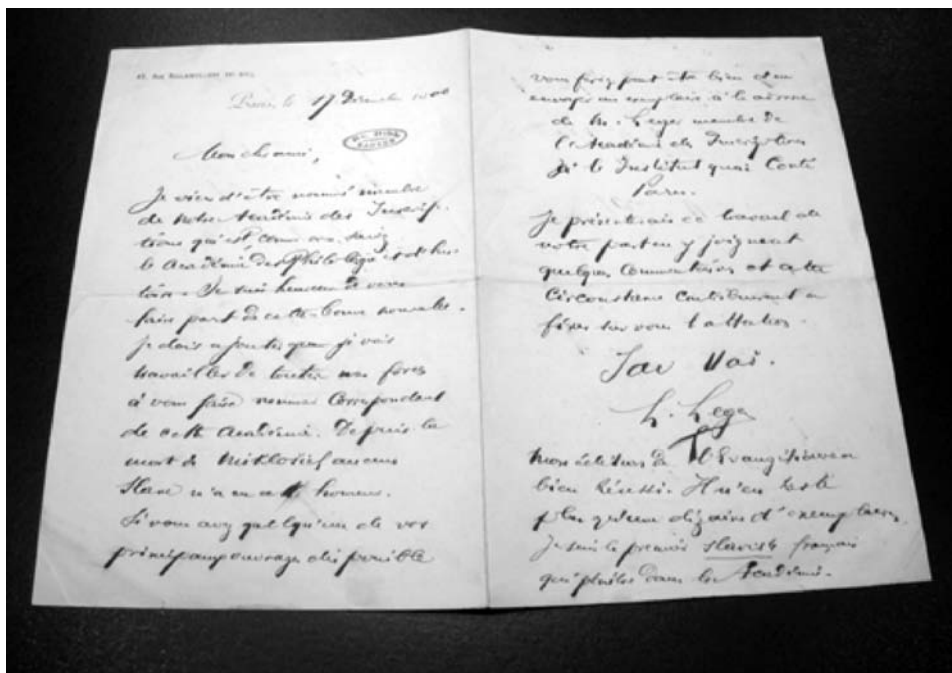 Paris, le 17 Décembre 1900
Mon cher ami,
Je viens d'être nommé membre
de notre Académie des Inscrip-
tions qui est comme vous savez
le Académie des Philologie et d'his-
toire. Je suis heureux de vous
faire part de cette bonne nouvelle.
je dois ajouter que je vais
travailler de toutes mes forces
à vous faire nommer Correspondant
de cette Académie. Depuis la
mort de Miklosich aucun
Slave n'a eu cet honneur.
Si vous avez quelqu'un de vos
principaux ouvrages disponible
vous feriez peut être bien d'en
envoyer un exemplaire à l'adresse
de M. Leger membre de
l'Académie des Inscription
à l'Institut quai Conti
Paris.
Je présenterais ce travail de
votre part en y joignant
quelques Commentaires et cette
Circonstance Contribuerait a
fixer sur vous l'attention.
L. Leger
Mon édition de l'Evangéliaire a
bien réussi. Il n'en reste
plus qu'une dizaine d'exemplaires.
Je suis le premier slaviste français
qui pénètre dans l'Académie.